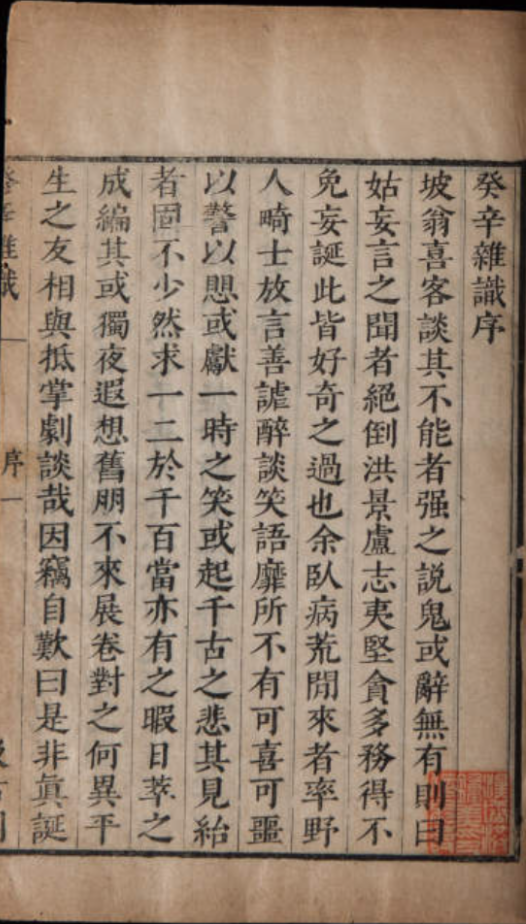 癸辛雜識序
坡翁喜客談其不能者强之説鬼或辭無有則曰
姑妄言之聞者絕倒洪景盧志夷堅貪多務得不
免妄誕此皆好奇之過也余臥病荒閒來者率野
人畸士放言善謔醉談笑語靡所不有可喜可噩
以警以思或獻一時之笑或起千古之悲其見紿
者固不少然求一二於千百當亦有之暇日萃之
成編其或獨夜遐想舊朋不來展卷對之何異平
生之友相與抵掌劇談哉因竊自歎曰是非眞誕
雜識
序
一